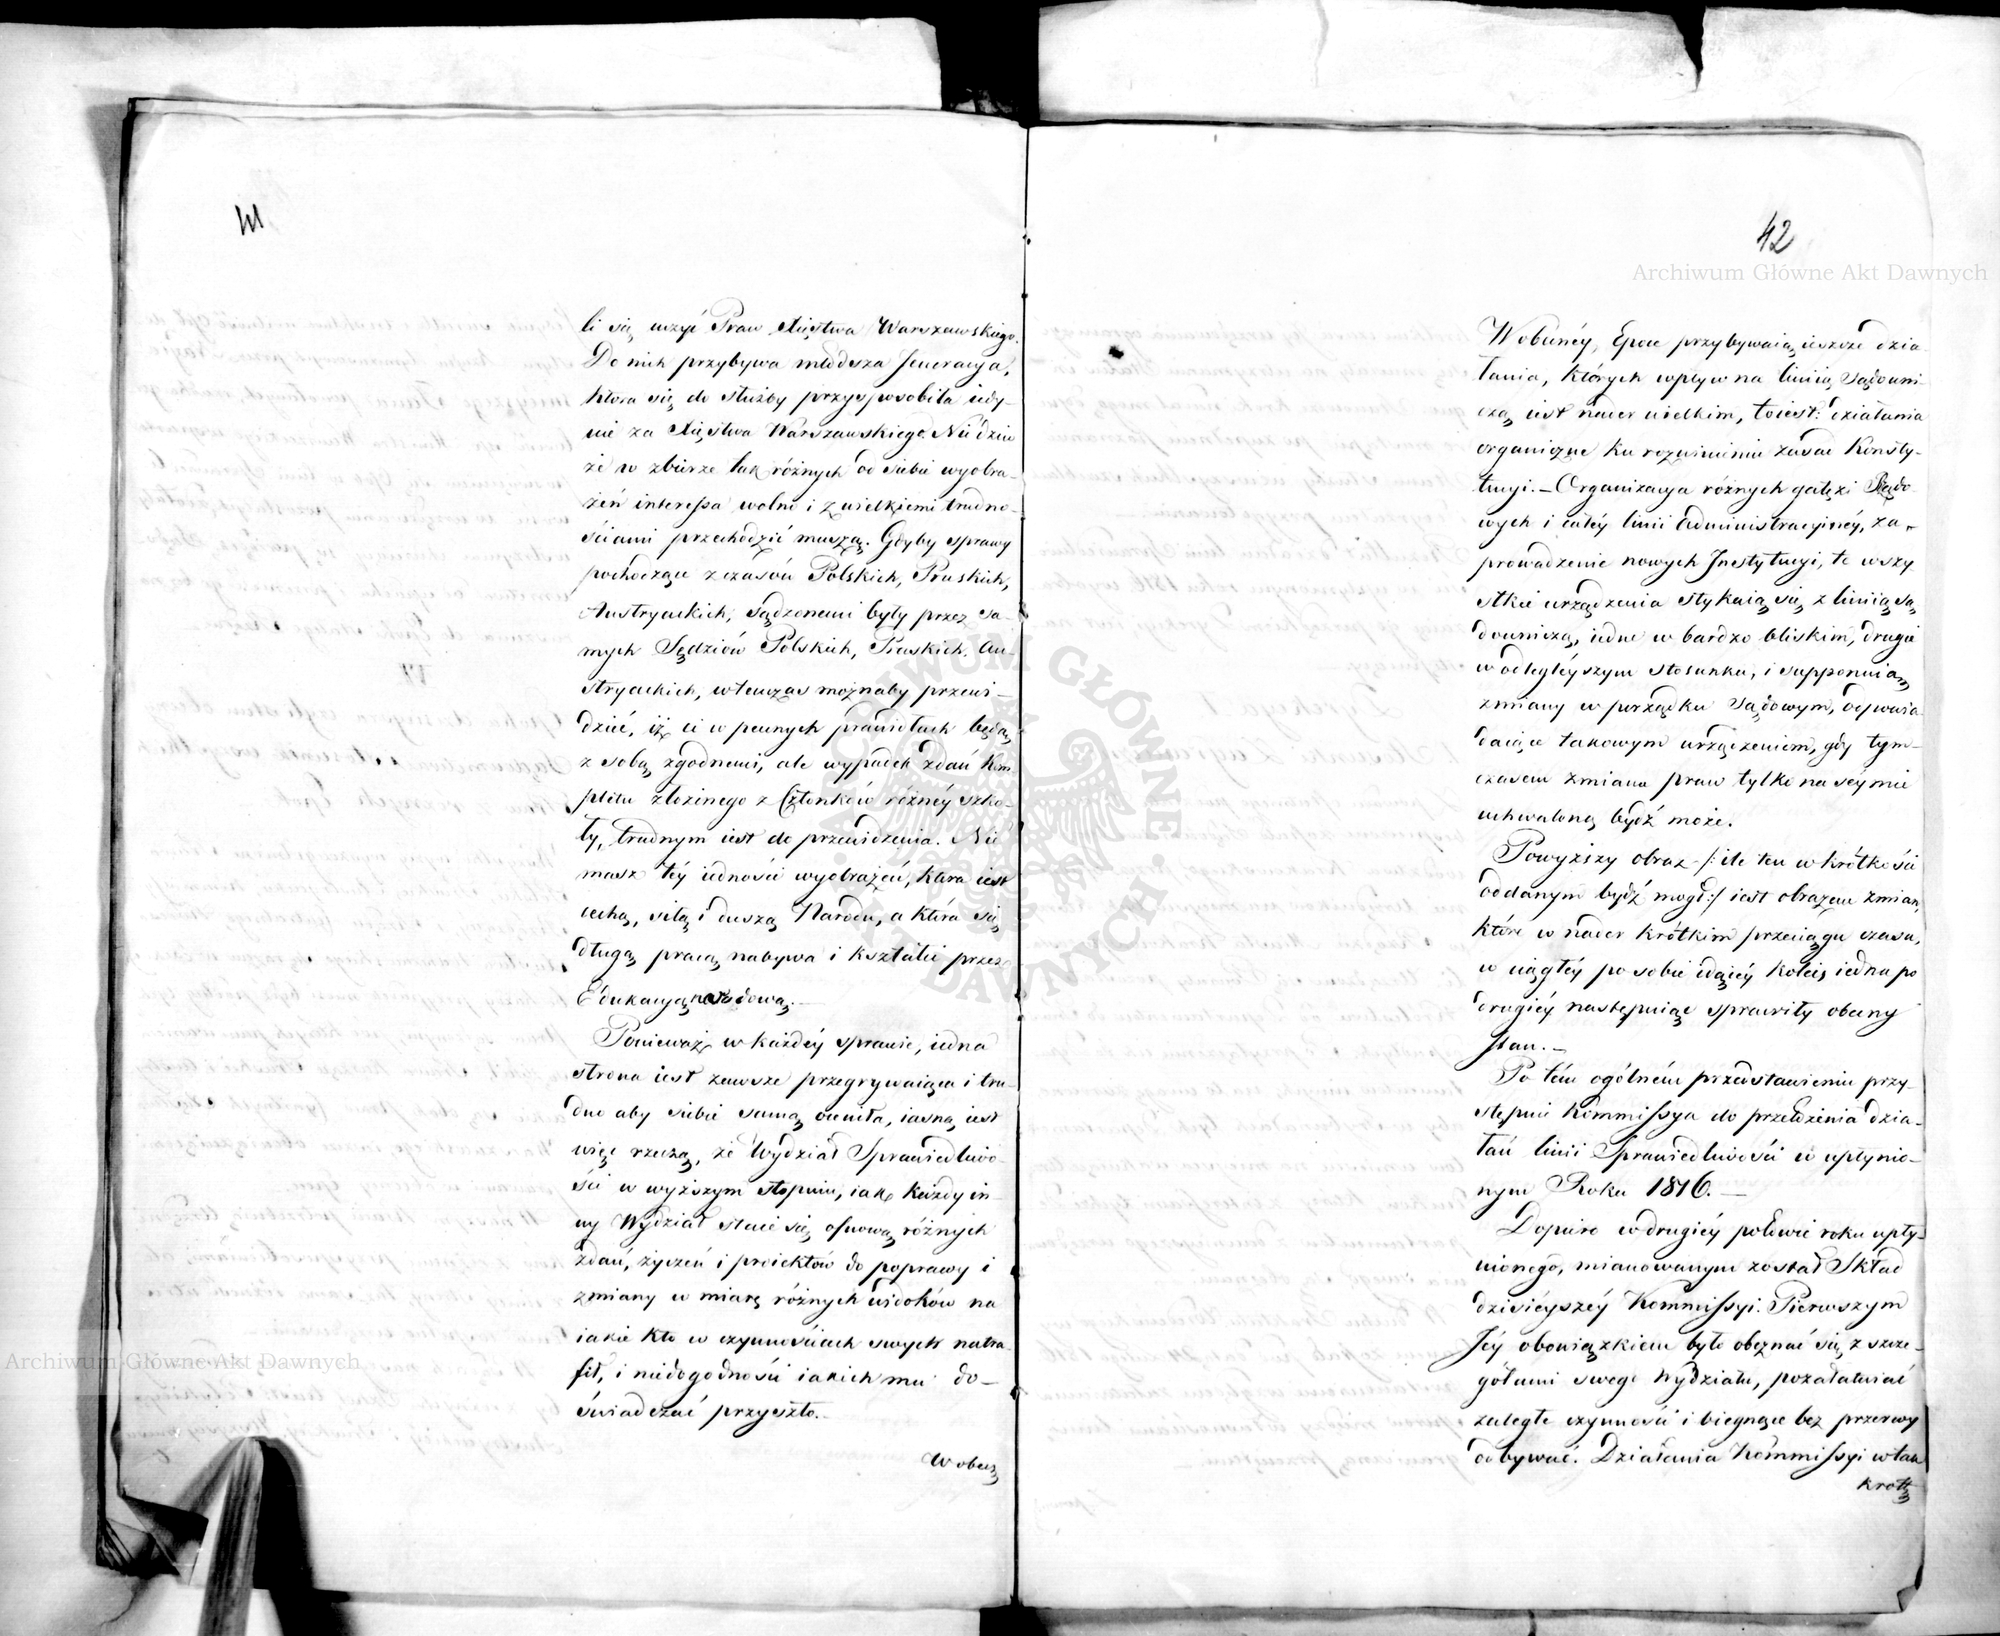 41
li się uczyć Praw Xięstwa Warszawskiego.
Do nich przybywa młodsza Jeneracya,
która się do służby przysposobiła iedy-
nie za Xięstwa Warszawskiego. Nie dziw
że w zbiorze tak różnych od siebie wyobra-
żeń interessa wolno i z wielkiemi trudno-
ściami przechodzić muszą. Gdyby sprawy
pochodzące z czasów Polskich, Pruskich,
Austryackich, sądzonemi były przez sa-
mych Sędziów Polskich, Pruskich, Au-
stryackich, wtenczas możnaby przewi-
dzieć, iż ci w pewnych prawidłach będą
z sobą zgodnemi, ale wypadek zdań Kom-
pletu złożonego z Członków różnéy szko-
ły, trudnym iest do przewidzenia. Nie
masz téy iedności wyobrażeń, która iest
cechą, siłą i duszą Narodu, a która się
długą pracą nabywa i kształci przez
Edukacyą narodową.—
Ponieważ w każdéy sprawie, iedna
strona iest zawsze przegrywaiąca i tru-
dno aby siebie samą winiła, iasną iest
więc rzeczą, że Wydział Sprawiedliwo-
ści w wyższym stopniu, iako każdy in-
ny Wydział staie się osnową różnych
zdań, życzeń i proiektów do poprawy i
zmiany w miarę różnych widoków na
iakie kto w czynnościach swych natra-
fił, i niedogodności iakich mu do-
świadczać przyszło.—
W obecn
42
Archiwum Główne Akt Dawnych
W obecnéy Epoce przybywaią ieszcze dzia-
łania, których wpływ na liniią sądowni-
czą iest nader wielkim, toiest: działania
organiczne ku rozwinieniu zasad Konsty-
tucyi.— Organizacya różnych gałęzi Rządo-
wych i całéy linii Administracyinéy, za-
prowadzenie nowych Instytucyi, te wszy
stkie urządzenia stykaią się z liniią są
downiczą, iedne w bardzo bliskim, drugie
w odległéyszym stosunku, i supponuią
zmiany w porządku Sądowym, odpowia-
daiące takowym urządzeniom, gdy tym-
czasem zmiana praw tylko na séymie
uchwaloną bydź może.
Powyższy obraz /: ile ten w krótkości
oddanym bydź mogł :/ iest obrazem zmian,
które w nader krótkim przeciągu czasu,
w ciągłéy po sobie idącéy koleię iedna po
drugiéy następuiąc sprawiły obecny
stan.—
Po tém ogólném przedstawieniu przy-
stępuie Kommissya do przeydzenia dzia-
łań linii Sprawiedliwości w upłynio-
nym Roku 1816.—
Dopiero w drugiéy połowie roku upły-
nionego, mianowanym został Skład
dzisiéyszéy Kommissyi. Pierwszym
Jéy obowiązkiem było obeznać się z szcze-
gółami swego Wydziału, pozałatwiać
zaległe czynności i biegnące bez przerwy
odbywać. Działania Kommissyi w tak
krótk
Archiwum Główne Akt Dawnych
ARCHIWUM GŁÓWNE AKT DAWNYCH